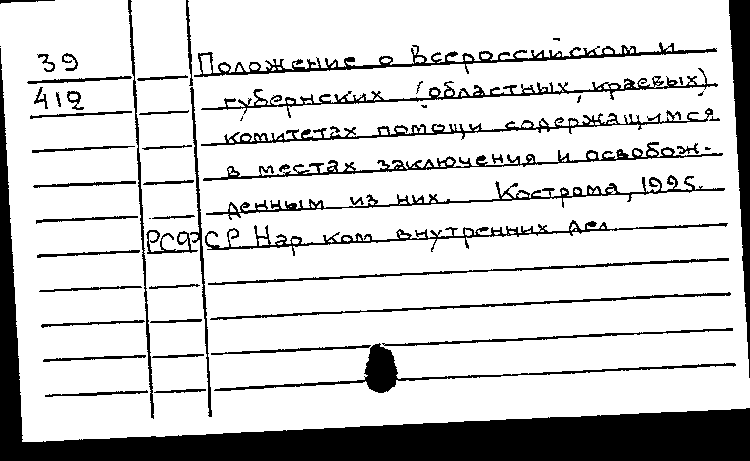 39 Положение о Всероссийском и
412 губернских (областных, краевых)
комитетах помощи содержащимся
в местах заключения и освобож-
денным из них. Кострома, 1925.
РСФСР Нар. ком. внутренних дел.